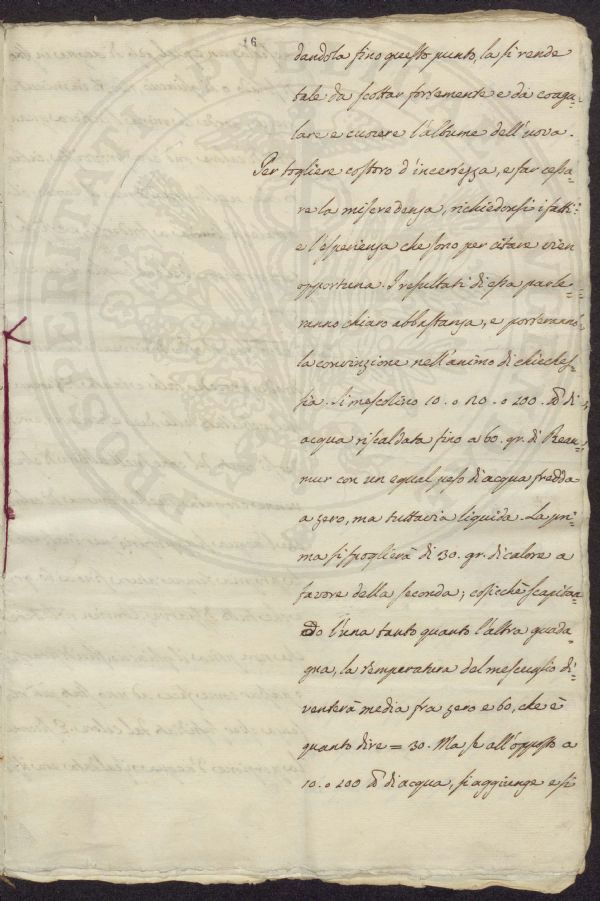 16
dandola fino questo punto, la si rende
tale da scottar fortemente e da coagu-
lare e cuocere l'albume dell'uova.
Per togliere costoro d'incertezza, e far cessa-
re la miscredenza, richiedonsi i fatti:
e l'esperienza che sono per citare vien
opportuna. I resultati di essa parle-
ranno chiaro abbastanza, e porteranno
la convinzione nell'animo di chicches-
sia. Si mescolino 10. o 120. o 200. di
acqua riscaldata fino a 60. gr. di Reau-
mur con un egual peso di acqua fredda
a zero, ma tuttavia liquida. La pri-
ma si spoglierà di 30. gr. di calore a
favore della seconda; cosicchè scapitan-
do l'una tanto quanto l'altra guada-
gna, la temperatura del mescuglio di-
venterà media fra zero e 60, che è
quanto dire = 30. Ma se all'opposto a
10. o 200 di acqua, si aggiunge e si